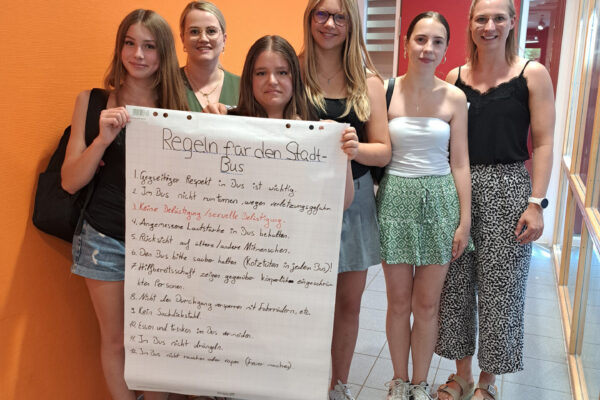 Regeln für den Stadt-
Bus
1. Gegseitiger Respekt in Bus ist wichtig.
2. Im Bus nicht rumturnen, wegen verletzungsgefahr.
3. Keine Belästigung/sexuelle Belästigung.
4. Angemessene Lautstärke in Bus behalten.
5. Rücksicht auf ältere/andere Mitmenschen.
6. Den Bus bitte sauber halten (Kotztüten in jedem Bus)!
7. Hilfsbereitschaft zeigen gegenüber körperlich eingeschränk-
ten Personen.
8. Nicht den Durchgang versperren mit Fahrrädern, etc.
9. Kein Sachdiebstahl.
10. Essen und trinken im Bus vermeiden.
11. Im Bus nicht drängeln.
12. Im Bus nicht rauchen oder vapen (Feuer machen)